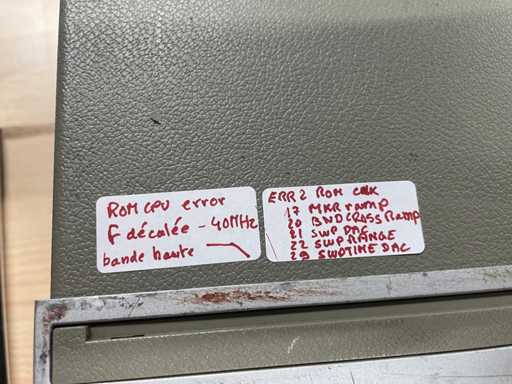 ROM CPU error
f décalée - 40MHz
bande haute
ERR 2 ROM
17 MKR ramp
20 BND CROSS Ramp
21 SWP DAC
22 SWP RANGE
29 SWOTIME DAC